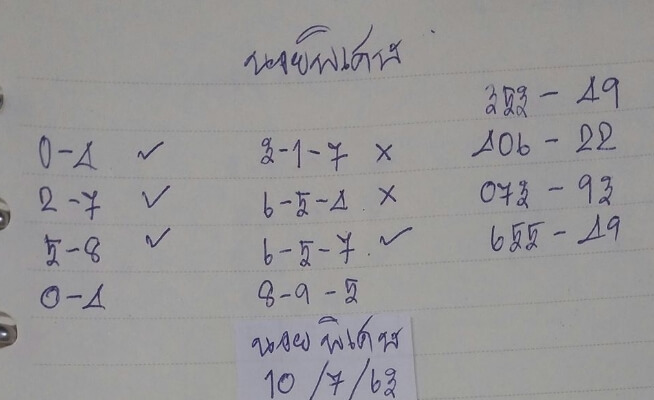 หวยพิเศษ
353 - 49
0-4 ✓ 3-1-7 × 406 - 22
2-7 ✓ 6-5-4 × 073 - 93
5-8 ✓ 6-5-7 ✓ 655 - 49
0-4 8-9-5
หวยพิเศษ
10/7/63